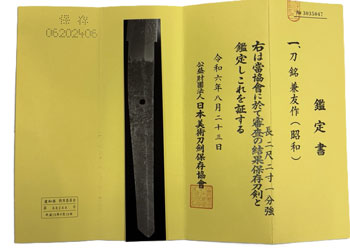 鑑定書
一、刀 銘 兼友作(昭和)
長 二尺二寸一分強
右は當協會に於て審査の結果保存刀剣と
鑑定しこれを証する
令和六年八月二十三日
公益財団法人 日本美術刀剣保存協會
No 3035047
保存
06202406